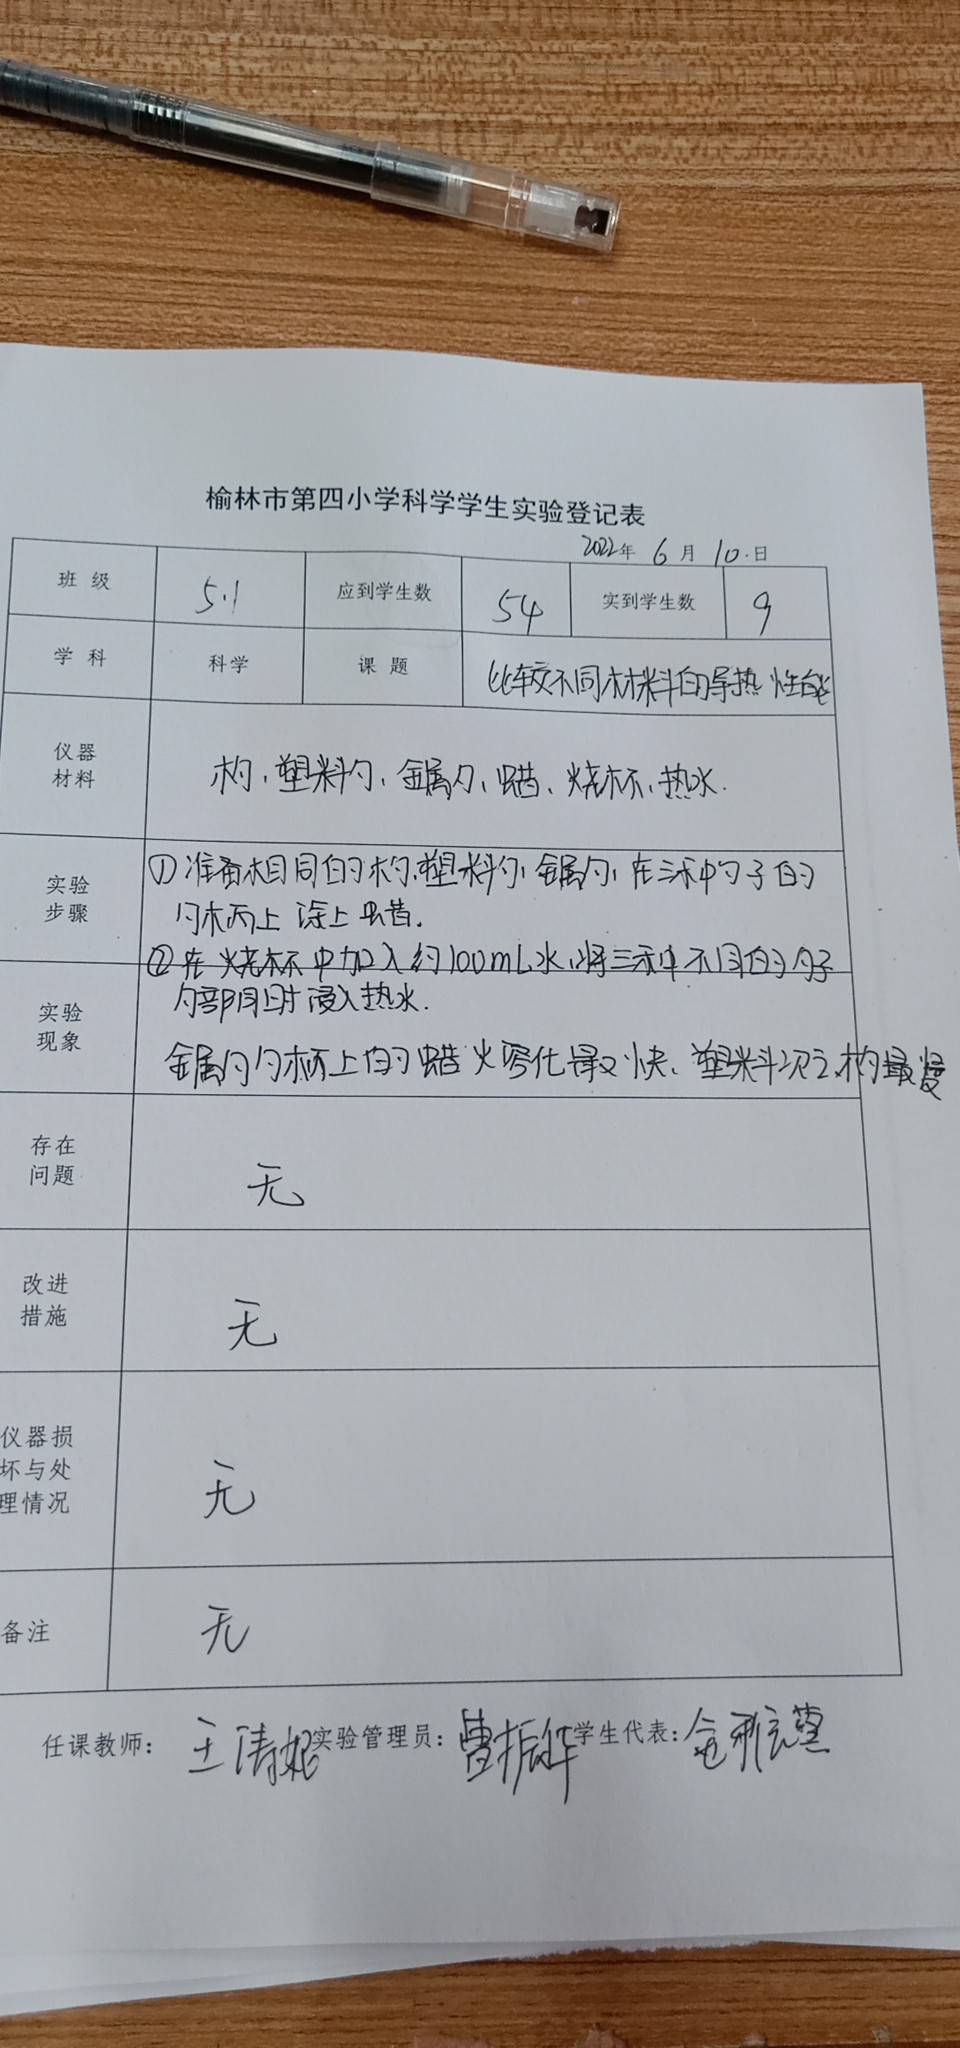 榆林市第四小学科学学生实验登记表
2022年 6月 10.日
班级 5.1 应到学生数 54 实到学生数 9
学科 科学 课题 比较不同材料的导热性能
仪器
材料
木勺、塑料勺、金属勺、蜡、烧杯、热水.
实验
步骤
①准备相同的木勺、塑料勺、金属勺,在三种勺子的
勺柄上涂上蜡.
②在烧杯中加入约100mL水,将三种不同的勺子
勺部同时浸入热水.
实验
现象
金属勺勺柄上的蜡熔化得最快、塑料次之、木勺最慢
存在
问题
无
改进
措施
无
仪器损
坏与处
理情况
无
备注
无
任课教师: 王 实验管理员: 曹振华 学生代表: 雅